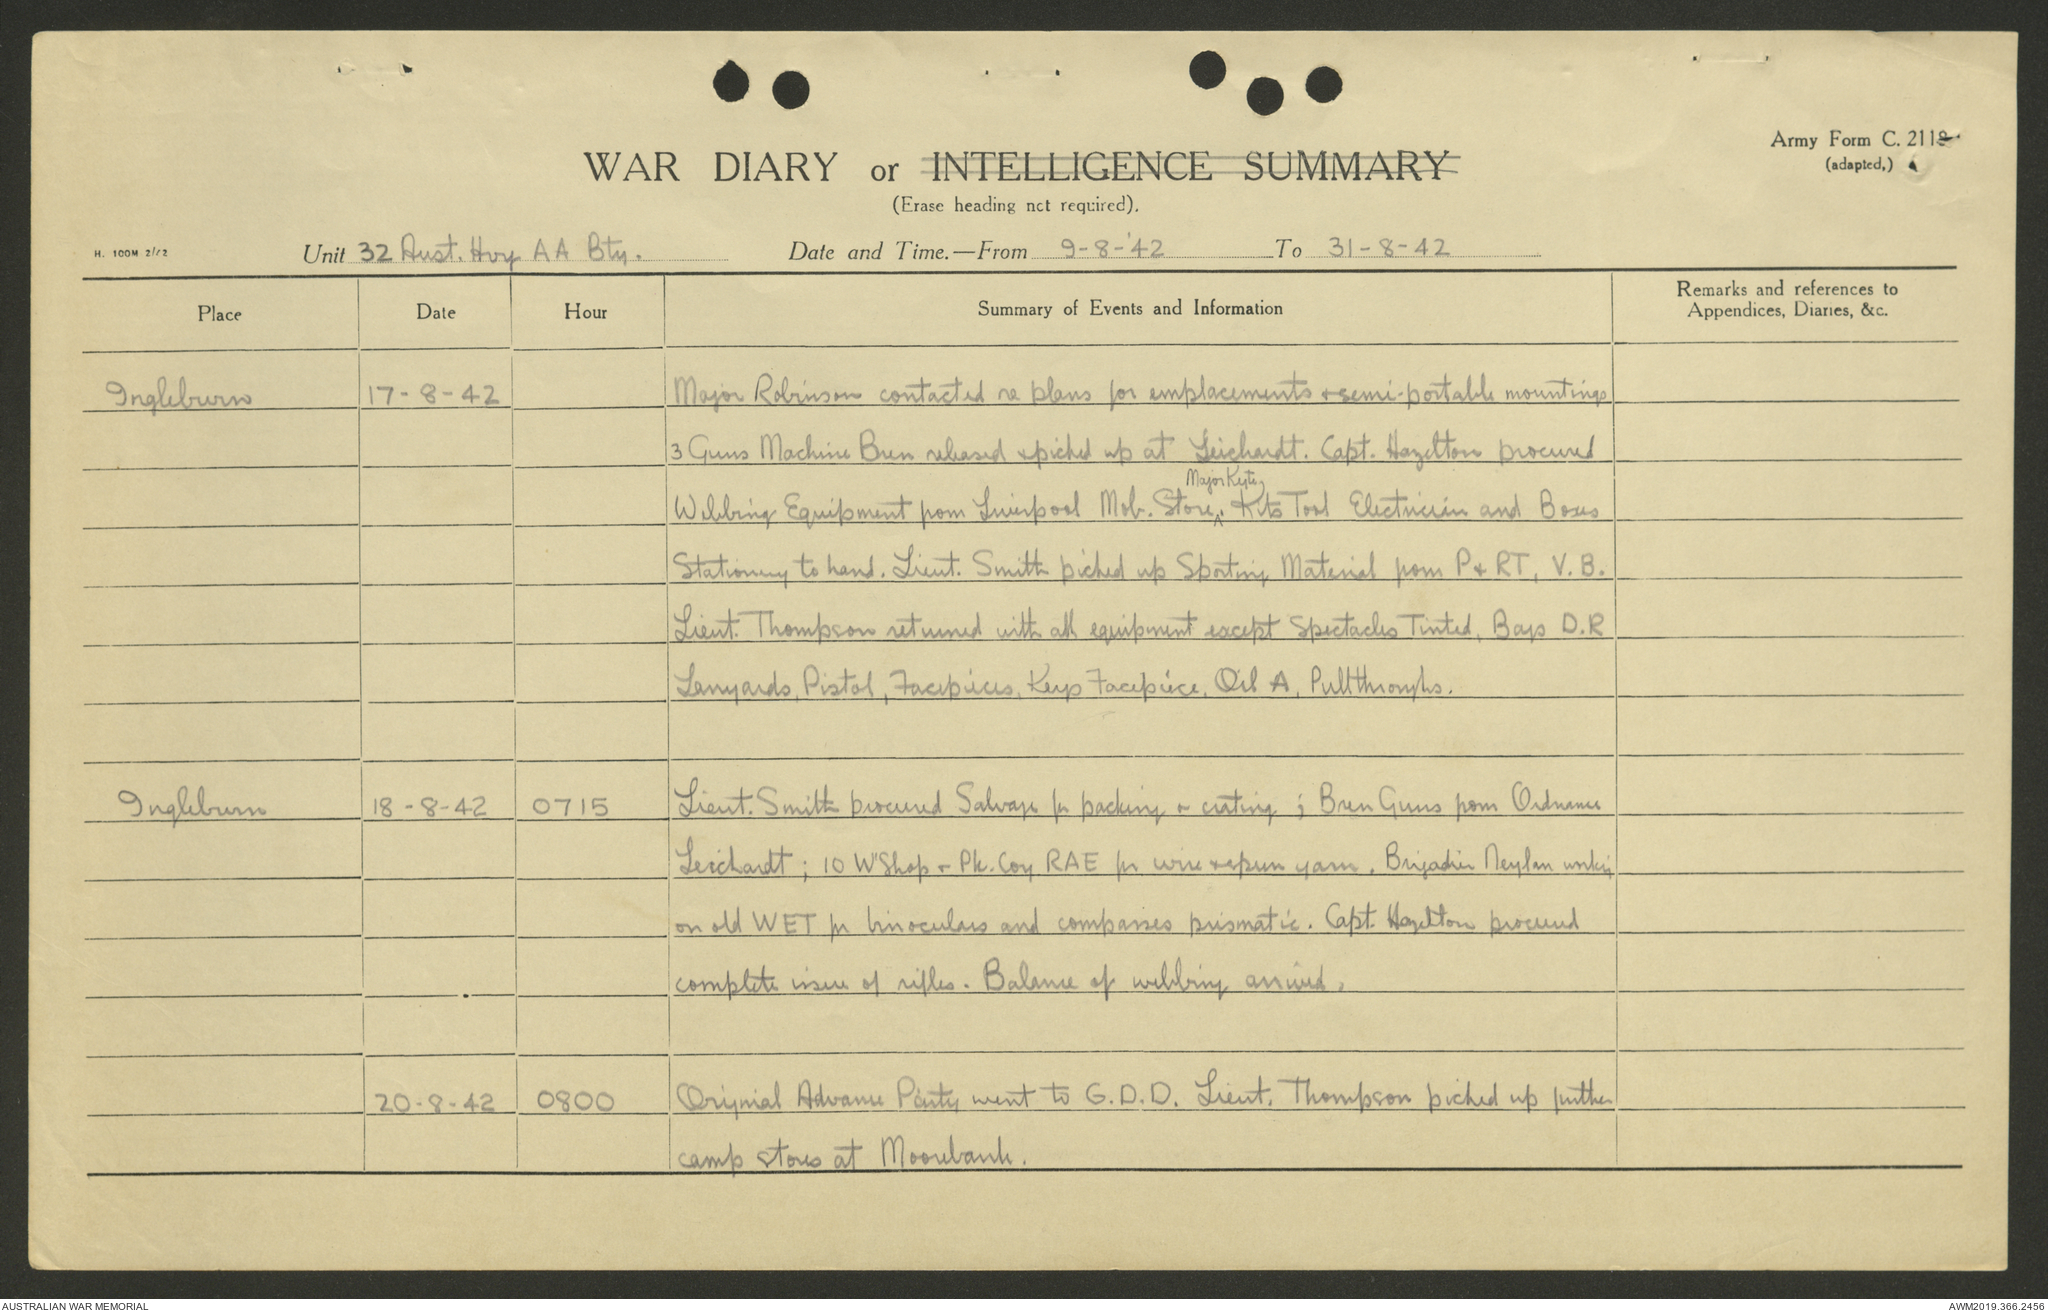 Army Form C. 2118
(adapted,)
WAR DIARY or INTELLIGENCE SUMMARY
(Erase heading not required).
H. 100M 2/42
Unit 32 Aust. Hvy AA Bty. Date and Time.—From 9-8-'42 To 31-8-42
Place Date Hour Summary of Events and Information Remarks and references to
Appendices, Diaries, &c.
Ingleburn 17-8-42 Major Robinson contacted re plans for emplacements & semi-portable mountings
3 Guns Machine Bren released & picked up at Leichardt. Capt. Hazelton procured
Major Kyte,
Webbing Equipment from Liverpool Mob. Store. Kits Tool Electrician and Boxes
Stationery to hand. Lieut. Smith picked up Sporting Material from P & RT, V.B.
Lieut. Thompson returned with all equipment except Spectacles Tinted, Bags D.R
Lanyards, Pistol, Facepieces, Keys Facepiece, Oil A, Pullthroughs.
Ingleburn 18-8-42 0715 Lieut. Smith procured Salvage for packing & crating ; Bren Guns from Ordnance
Leichardt ; 10 W'Shop & Pk. Coy RAE for wire & spun yarn. Brigadier Neylan working
on old WET for binoculars and compasses prismatic. Capt. Hazelton procured
complete issue of rifles. Balance of webbing arrived.
20-8-42 0800 Original Advance Party went to G.D.D. Lieut. Thompson picked up further
camp stores at Moorebank.
AUSTRALIAN WAR MEMORIAL AWM2019.366.2456